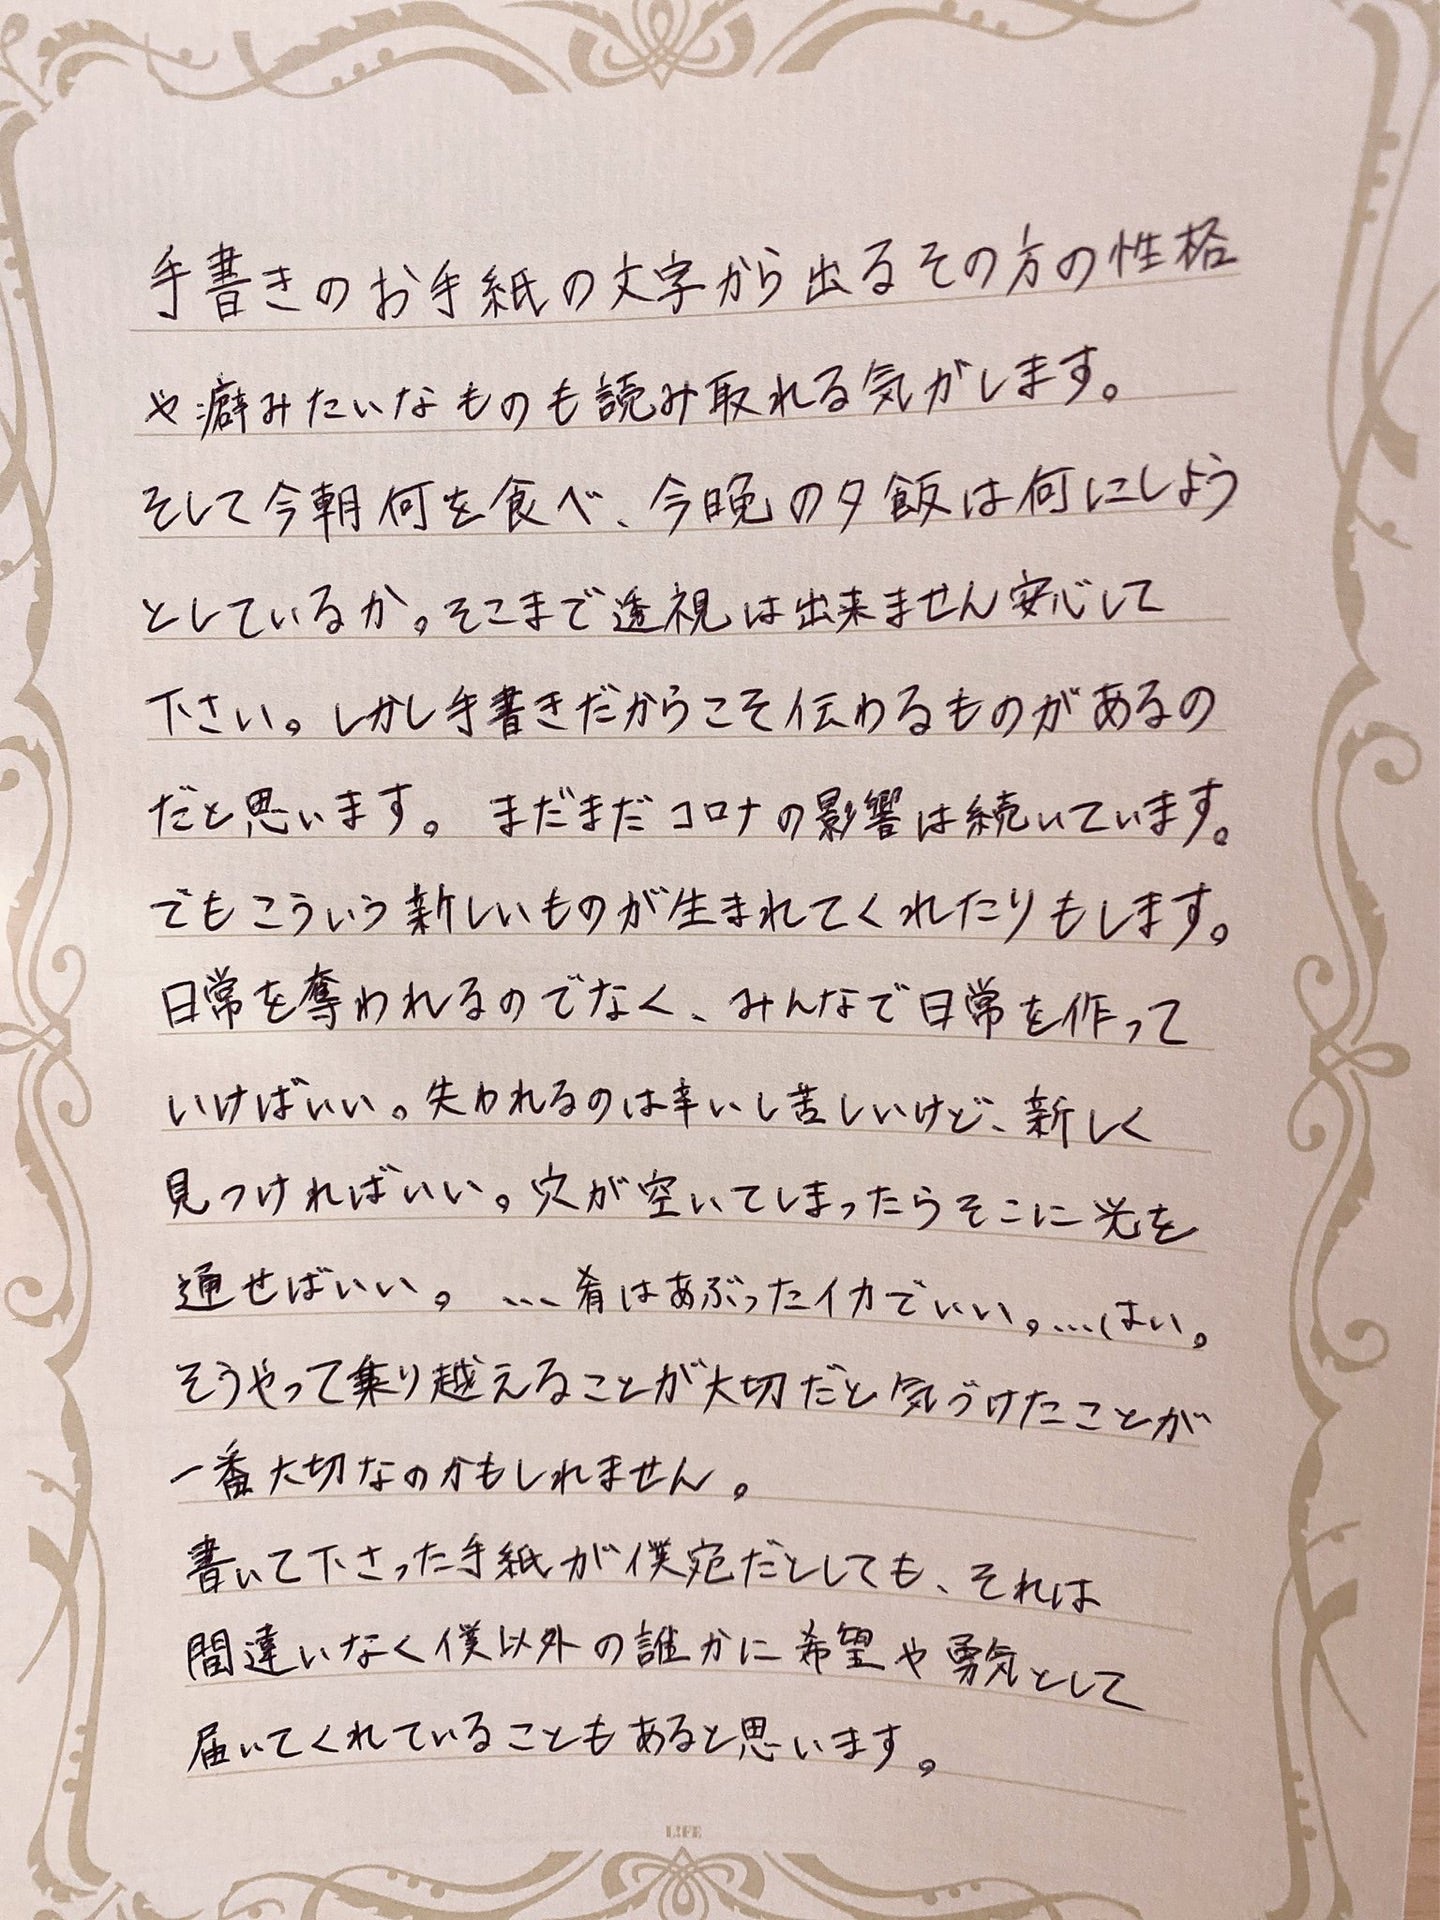 手書きのお手紙の文字から出るその方の性格
や癖みたいなものも読み取れる気がします。
そして今朝何を食べ、今晩の夕飯は何にしよう
としているか。そこまで透視は出来ません安心して
下さい。しかし手書きだからこそ伝わるものがあるの
だと思います。 まだまだコロナの影響は続いています。
でもこういう新しいものが生まれてくれたりもします。
日常を奪われるのでなく、みんなで日常を作って
いけばいい。失われるのは辛いし苦しいけど、新しく
見つければいい。穴が空いてしまったらそこに光を
通せばいい。 …肴はあぶったイカでいい。…はい。
そうやって乗り越えることが大切だと気づけたことが
一番大切なのかもしれません。
書いて下さった手紙が僕宛だとしても、それは
間違いなく僕以外の誰かに希望や勇気として
届いてくれていることもあると思います。
L!FE